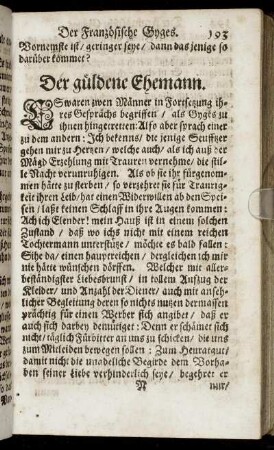 Der Französische Gyges. 193
Vornemste ist / geringer seye / dann das jenige so
darüber kommet?
Der güldene Ehemann.
ES waren zween Männer in Fortsezung ih-
res Gesprächs begriffen / als Gyges zu
ihnen hingetretten: Also aber sprach einer
zu dem andern: Ich bekenns / die jenige Seuffzer
gehen mir zu Hertzen / welche auch / als ich auß der
Mägd Erzehlung mit Trauren vernehme / die stil-
le Nacht verunruhigen. Als ob sie ihr fürgenom-
men hätte zu sterben / so verzehret sie für Traurig-
keit ihren Leib / hat einen Widerwillen ab den Spei-
sen / laßt keinen Schlaff in ihre Augen kommen:
Ach ich Elender! mein Hauß ist in einem solchen
Zustand / daß wo ichs nicht mit einem reichen
Tochtermann unterstütze / möchte es bald fallen:
Sihe da / einen hauptreichen / dergleichen ich mir
nie hätte wünschen dörffen. Welcher mit aller-
beständigster Liebesbrunst / in tollem Aufzug der
Kleider / und Anzahl der Diener / auch mit anseh-
licher Begleitung deren so nichts nutzen dermassen
prächtig für einen Werber sich angibet / daß er
auch sich darbey demütiget: Denn er schämet sich
nicht / täglich Fürbitter an uns zu schicken / die uns
zum Mitleiden bewegen sollen: Zum Heuratgut /
damit nicht die unadeliche Begirde dem Vorha-
ben seiner Liebe verhinderlich seye / begehret er
N nur /